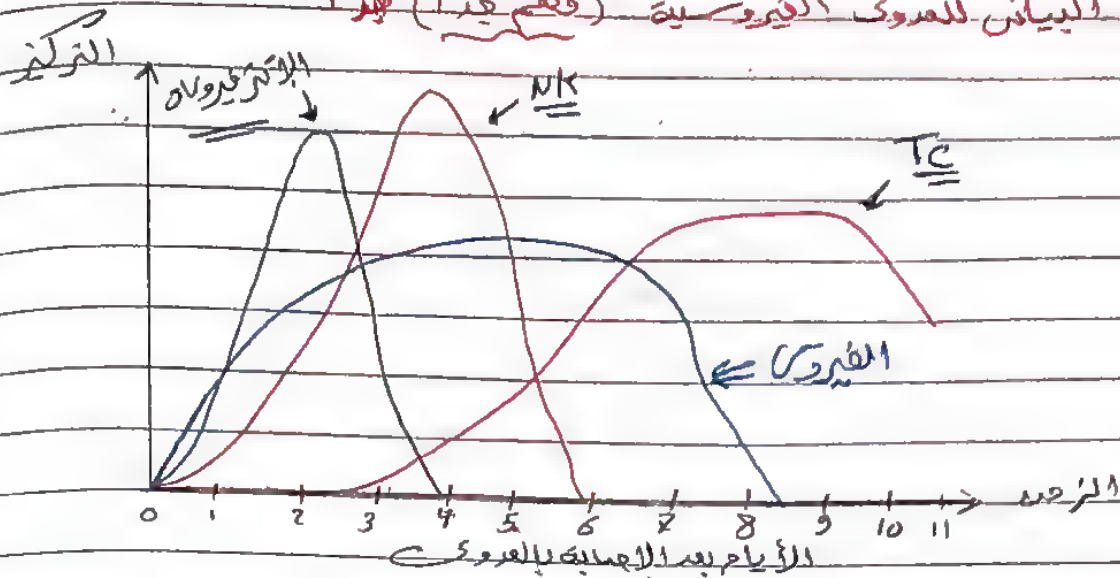 البياني للعدوى الفيروسية (مهم جداً) جداً
التركيز
الانترفيرونات
NK
TC
الفيروس
الزمن
0 1 2 3 4 5 6 7 8 9 10 11
الأيام بعد الاصابة بالعدوى